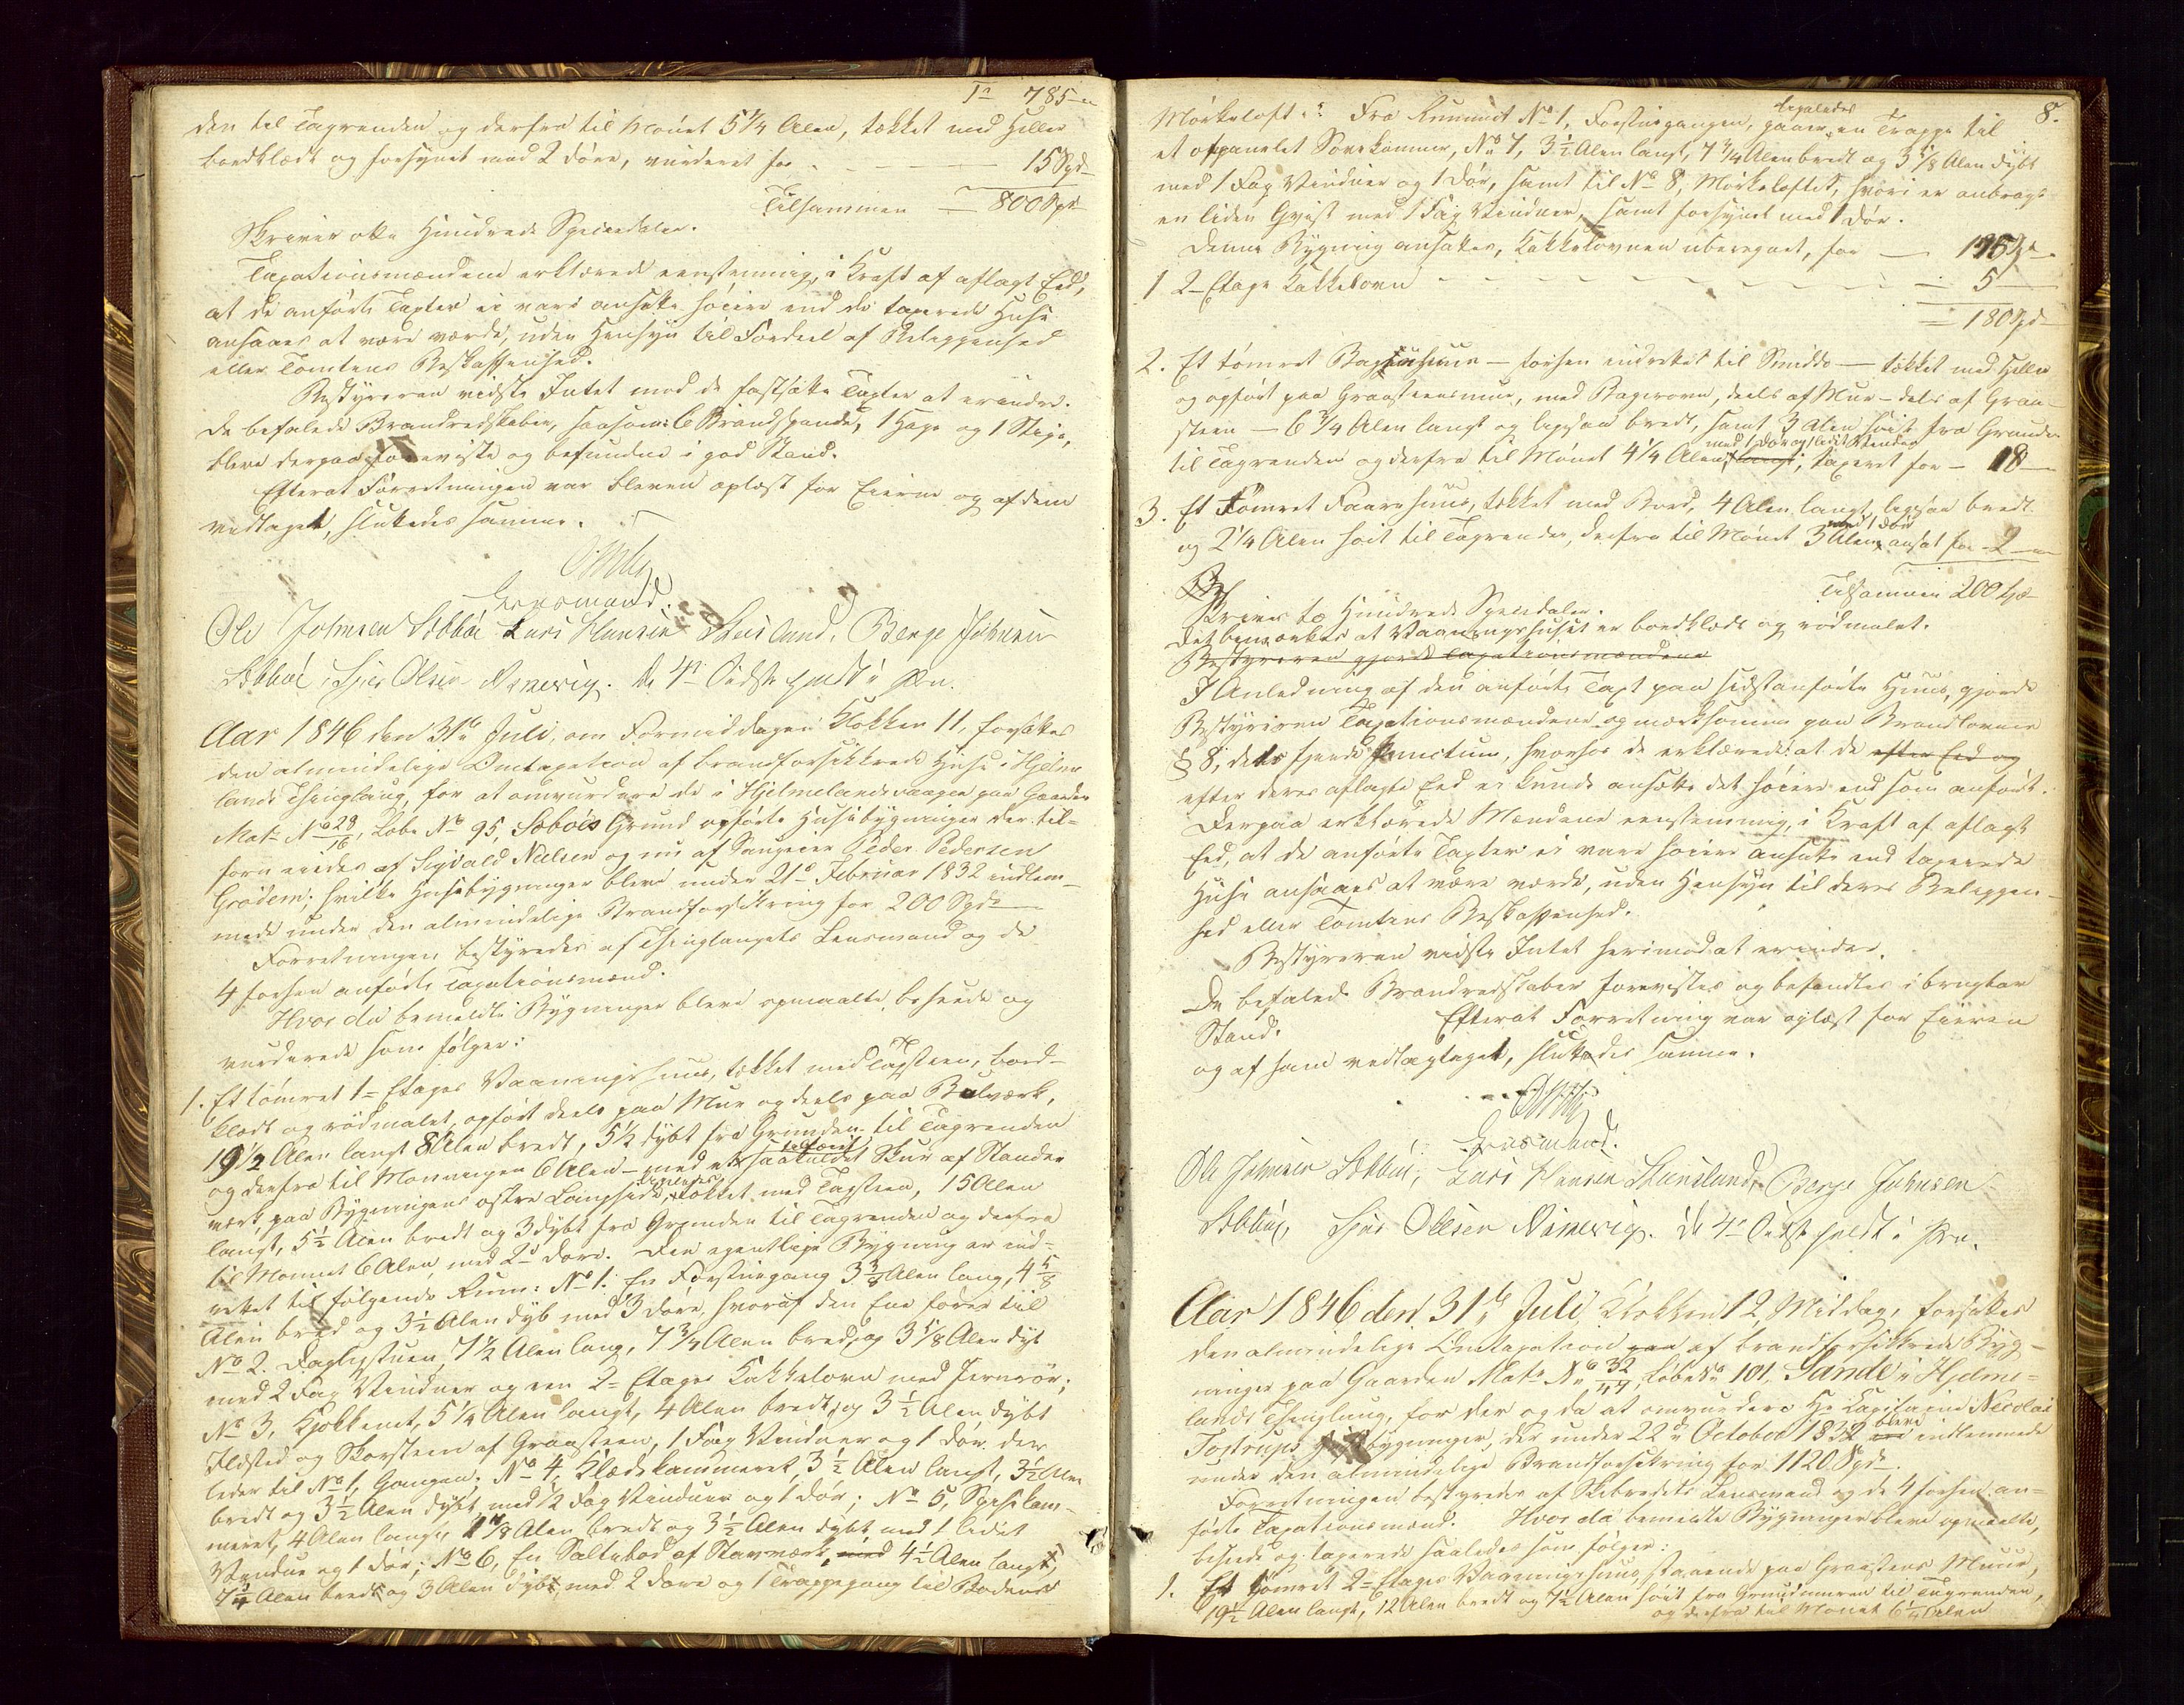 1" 785 "
den til Tagrenden og derfra til Mönet 5 1/4 Alen, tækket med Heller
bordklædt og forsynet med 2 Döre, vurderet for - - - 15 Spd
Tilsammen — 800 Spd
Skriver otte Hundrede Speciedaler.
Taxationsmændene erklærede eenstemmig, i Kraft af aflagt Eed,
at de anförte Taxter ei vare ansatte höiere end de taxerede Huse
ansaaes at være værdt, uden Hensyn til Fordeel af Beliggenhed
eller Tomtens Beskaffenhed.
Bestyreren vidste Intet mod de fastsatte Taxter at erindre.
De befalede Brandredskaber, saasom: 6 Brandspande, 1 Hage og 1 Stige,
bleve derpaa foreviste og befundne i god Stand.
Efterat Forretningen var bleven oplæst for Eierne og af dem
vedtaget, sluttedes samme.
Lensmand.
Ole Johnsen Sæbböe Lars Hansen Steinslund, Berge Johnsen
Sæbböe, Sjur Olsen Nænevig. De 4re Sidste holdt i Pen.
Aar 1846 den 31te Juli, om Formiddagen Klokken 11, forsattes
den almindelige Omtaxation af brandforsikkrede Huse i Hjelme-
lands Thinglaug, for at omvurdere de i Hjelmelandsvaagen paa Gaarden
Mat. No 28/16, Löbe No 95, Sæböes Grund opförte Husebygninger der til-
forn eiedes af Sigvald Nielsen og nu af Sangeier Peder Pedersen
Grödem; hvilke Husebygninger bleve under 21de Februar 1832 indlem-
mede under den almindelige Brandforsikring for 200 Spd
Forretningen bestyredes af Thinglaugets Lensmand og de
4 forhen anförte Taxationsmænd.
Hvor da bemeldte Bygninger bleve opmaalte, beseede og
vurderede som fölger:
1. Et tömret 1 Etages Vaaningshuus, tækket med Tagsteen, bord-
klædt og rödmalet, opfört deels paa Muur og deels paa Bulværk,
19 1/2 Alen langt 8 Alen bredt, 5 1/2 dybt fra Grunden til Tagrenden
og derfra til Mönningen 6 Alen — med et saakaldet Skur af Stander
værk, paa Bygningens östre Langside, tækket med Tagsteen, 15 Alen
langt, 5 1/2 Alen bredt og 3 dybt fra Grunden til Tagrenden og derfra
til Mönnet 6 Alen, med 2de Döre. Den egentlige Bygning er ind-
rettet til fölgende Rum: No 1. En Forstuegang 3 3/8 Alen lang, 4 5/8
Alen bred og 3 1/2 Alen dyb med 3 Döre, hvoraf den Ene förer til
No 2. Dagligstuen, 7 1/2 Alen lang, 7 3/4 Alen bred, og 3 5/8 Alen dyb
med 2 Fag Vinduer og een 2 Etages Kakkelovn med Jernrör;
No 3, Kjökkenet, 5 1/4 Alen langt, 4 Alen bredt, og 3 1/2 Alen dybt
Ildsted og Skorsteen af Graasteen, 1 Fag Vinduer og 1 Dör der
leder til No 1, Gangen; No 4, Klædekammeret 3 1/2 Alen langt, 3 1/2 Alen
bredt og 3 1/2 Alen dybt med 1/2 Fag Vinduer og 1 Dör; No 5, Spisekam-
meret, 4 Alen langt, Alen bredt og 3 1/2 Alen dybt med 1 lidet
Vindue og 1 Dör; No 6, En Saltebod af Stavværk, med 4 1/2 Alen langt,
Alen bredt og 3 Alen dybt, med 2 Döre og 1 Trappegang til Bodens
8.
Mörkeloft. Fra Rummet No 1, Forstuegangen, gaaer ligeledes en Trappe til
et ofpanelet Sovekammer, No 7, 3 1/2 Alen langt, 7 3/4 Alen bredt og 3 5/8 Alen dybt
med 1 Fag Vinduer og 1 Dör, samt til No 8, Mörkeloftet, hvori er anbragt
en liden Qvist med 1 Fag Vinduer, samt forsynet med 1 Dör.
Denne Bygning ansattes, Kakkelovnen uberegnet, for — 175 Spd
1 2 Etages Kakkelovn - - - - - - 5
= 180 Spd
2. Et tömret — forhen indrettet til Smidde — tækket med Heller
og opfört paa Graasteensmuur, med Bagerovn, deels af Mur - dels af Graa-
steen — 6 3/4 Alen langt og ligesaa bredt, samt 3 Alen höit fra Grunden
til Tagrenden og derfra til Mönet 4 1/4 Alen, med 1 Dör og 1 lidet Vindue, taxeret for — 18
3. Et Tömret Faarehuus, tækket med Bord, 4 Alen langt, ligesaa bredt
og 2 1/4 Alen höit til Tagrenden, derfra til Mönet 3 Alen, med 1 Dör ansat for — 2 —
Tilsammen 200 Sp
Skriver to Hundrede Speciedaler.
Det bemærkes at Vaaningshuset er bordklædt og rödmalet.
Bestyreren gjorde Taxationsmændene
I Anledning af den anförte Taxt paa sidstanförte Huus, gjorde
Bestyreren Taxationsmændene opmærksomme paa Brandlovens
§ 8, dets fjerde Punctum, hvorfor de erklærede at de efter Eed og
efter deres aflagte Eed ei kunde ansætte det höiere end som anfört.
Derpaa erklærede Mændene eenstemmig, i Kraft af aflagt
Eed, at de anförte Taxter ei vare höiere ansatte end taxerede
Huse ansaaes at være værdt, uden Hensyn til deres Beliggen-
hed eller Tomtens Beskaffenhed.
Bestyreren vidste Intet herimod at erindre.
De befalede Brandredskaber forevistes og befandtes i brugbar
Stand. Efterat Forretning var oplæst for Eieren
og af ham vedtaget, sluttedes samme.
Lensmand.
Ole Johnsen Sæbböe, Lars Hansen Steinslund, Berge Johnsen
Sæbböe, Sjur Olesen Nænevig. De 4re Sidst holdt i Pen.
Aar 1846 den 31te Juli, Klokken 12 Middag, forsattes
den almindelige Omtaxation paa af brandforsikkrede Byg-
ninger paa Gaarden Mat. No 32/, Löbe No 101, Sande i Hjelme-
lands Thinglaug, for der og da at omvurdere Hr Capitaine Nicolai
Tostrups Husebygninger, der under 22de October 1832 bleve indlemmede
under den almindelige Brandforsikring for 1120 Spd.
Forretningen bestyredes af Skibredets Lensmand og de 4 forhen an-
förte Taxationsmænd. Hvor da bemeldte Bygninger bleve opmaalte,
beseede og taxerede saaledes som fölger:
1. Et tömret 2 Etages Vaaningshuus, staaende paa Graasteens Muur,
19 1/2 Alen langt, 12 Alen bredt og 7 1/2 Alen höit fra Grundmuren til Tagrenden,
og derfra til Mönet 6 1/4 Alen